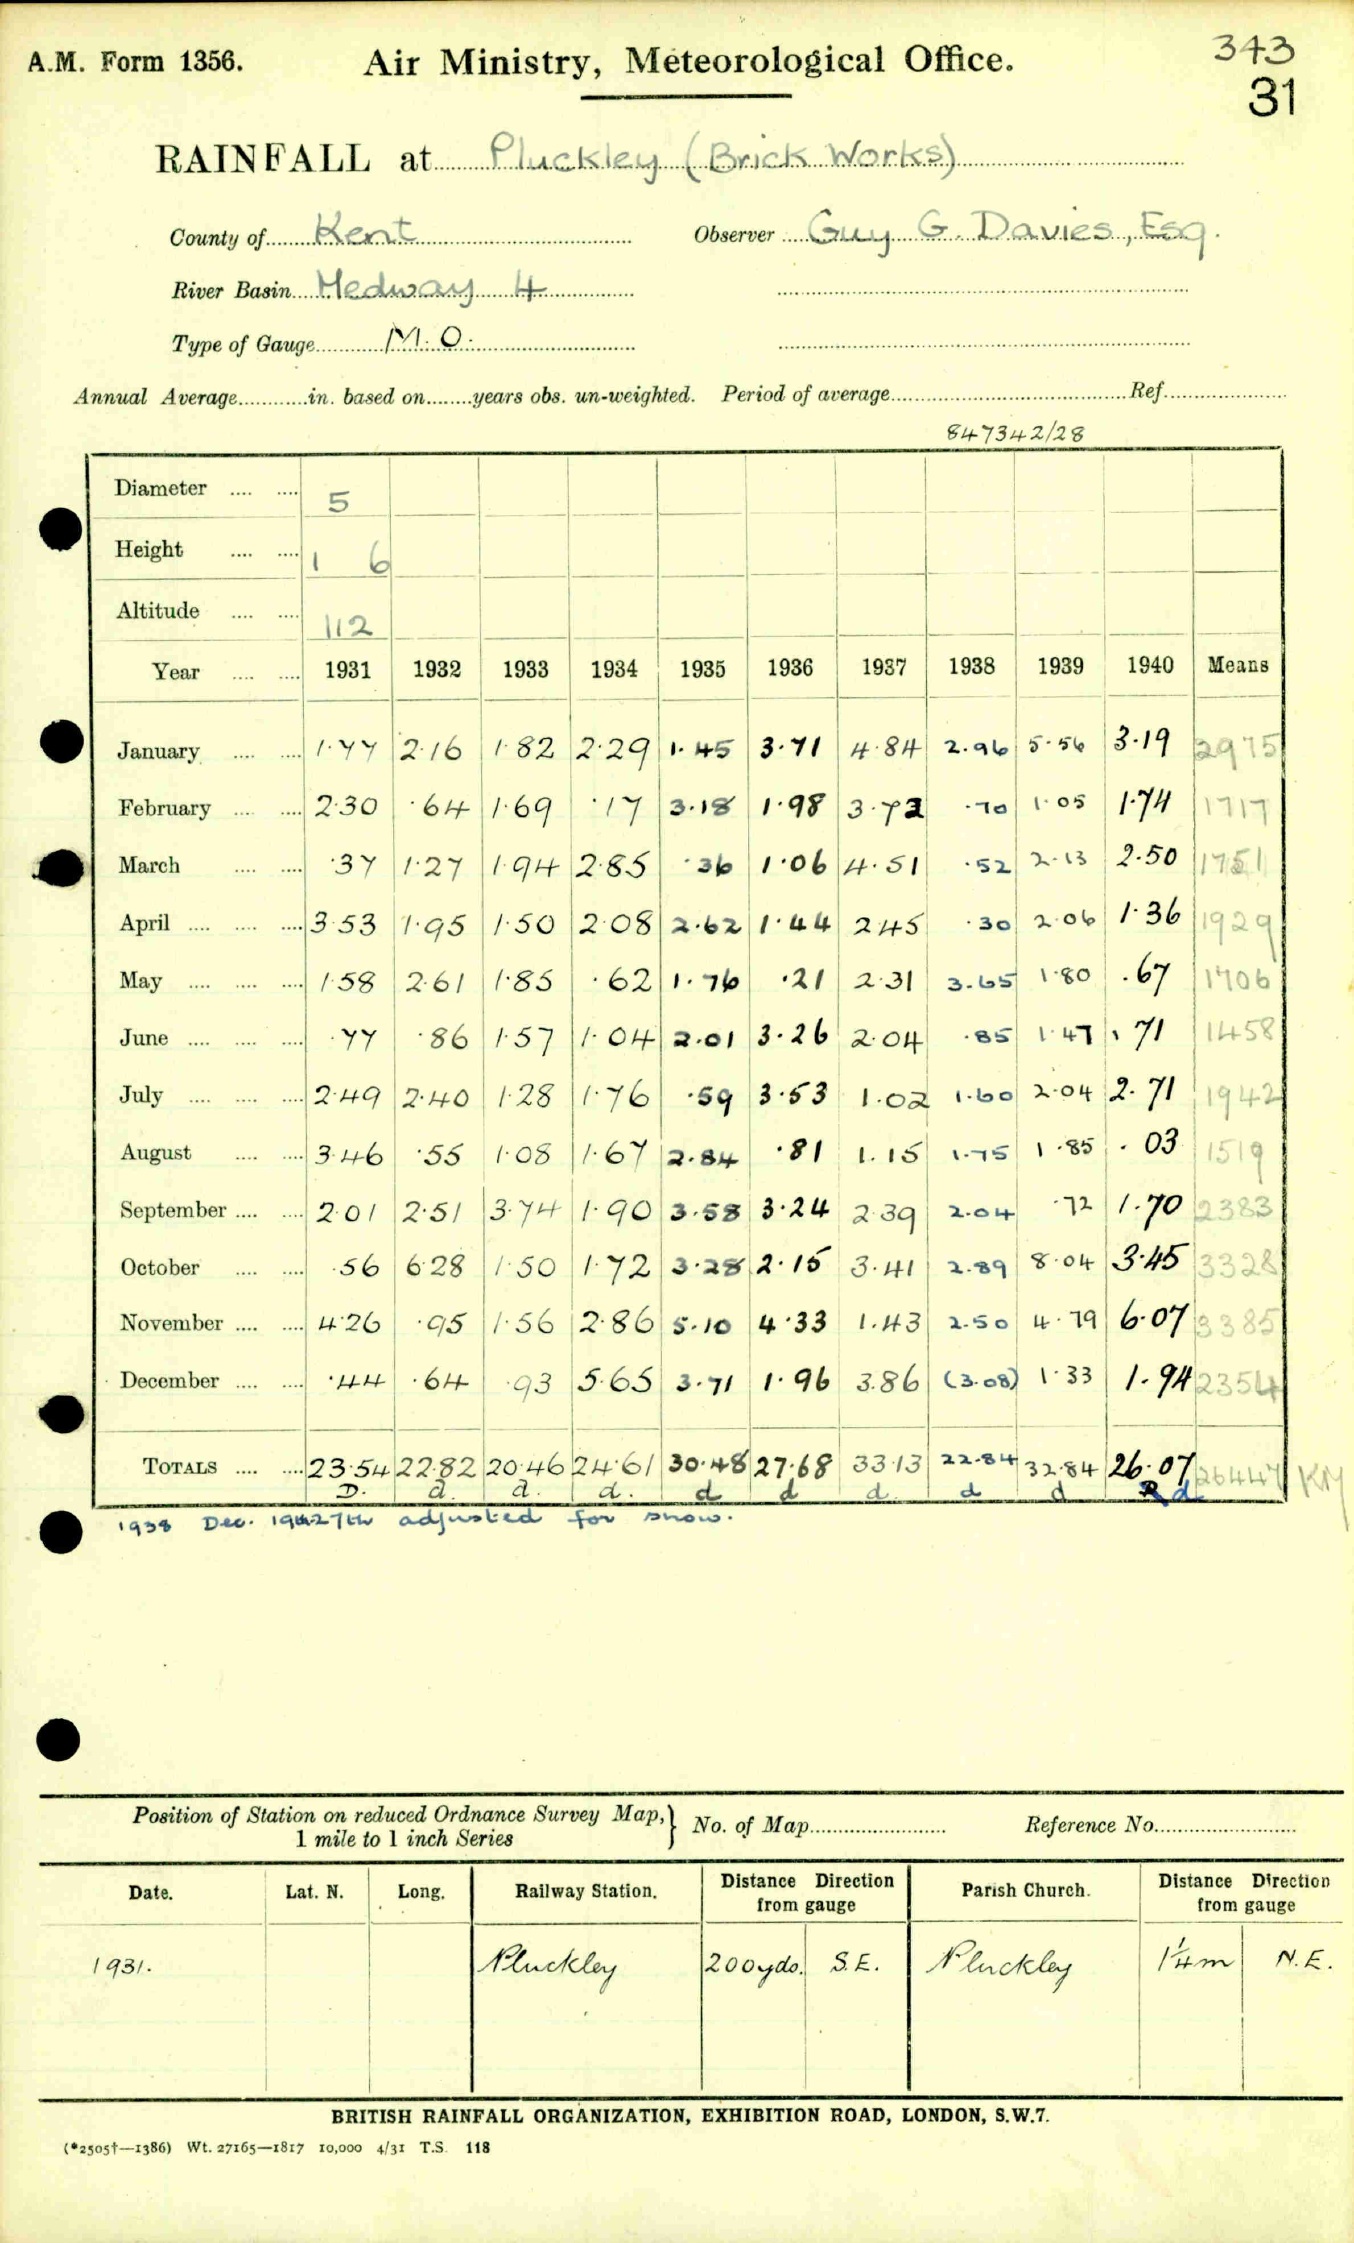 A.M. Form 1356.
Air Ministry, Meteorological Office.
343
31
RAINFALL at Pluckley (Brick Works)
County of Kent Observer Guy G. Davies, Esq.
River Basin Medway 4
Type of Gauge M.O.
Annual Average in. based on years obs. un-weighted. Period of average Ref.
847342/28
Diameter 5
Height 1 6
Altitude 112
Year 1931 1932 1933 1934 1935 1936 1937 1938 1939 1940 Means
January 1.77 2.16 1.82 2.29 1.45 3.71 4.84 2.96 5.56 3.19 2975
February 2.30 .64 1.69 .17 3.18 1.98 3.72 .70 1.05 1.74 1717
March .37 1.27 1.94 2.85 .36 1.06 4.51 .52 2.13 2.50 1751
April 3.53 1.95 1.50 2.08 2.62 1.44 2.45 .30 2.06 1.36 1929
May 1.58 2.61 1.85 .62 1.76 .21 2.31 3.65 1.80 .67 1706
June .77 .86 1.57 1.04 2.01 3.26 2.04 .85 1.47 .71 1458
July 2.49 2.40 1.28 1.76 .59 3.53 1.02 1.60 2.04 2.71 1942
August 3.46 .55 1.08 1.67 2.84 .81 1.15 1.75 1.85 .03 1519
September 2.01 2.51 3.74 1.90 3.58 3.24 2.39 2.04 .72 1.70 2383
October .56 6.28 1.50 1.72 3.28 2.15 3.41 2.89 8.04 3.45 3328
November 4.26 .95 1.56 2.86 5.10 4.33 1.43 2.50 4.79 6.07 3385
December .44 .64 .93 5.65 3.71 1.96 3.86 (3.08) 1.33 1.94 2354
TOTALS 23.54 22.82 20.46 24.61 30.48 27.68 33.13 22.84 32.84 26.07 26447 KM
D. d. d. d. d d d. d d d
1938 Dec. 27th adjusted for snow.
Position of Station on reduced Ordnance Survey Map, 1 mile to 1 inch Series } No. of Map Reference No.
Date. Lat. N. Long. Railway Station. Distance Direction from gauge Parish Church. Distance Direction from gauge
1931. Pluckley 200yds. S.E. Pluckley 1¼m N.E.
BRITISH RAINFALL ORGANIZATION, EXHIBITION ROAD, LONDON, S.W.7.
(*2505†—1386) Wt. 27165—1817 10,000 4/31 T.S. 118